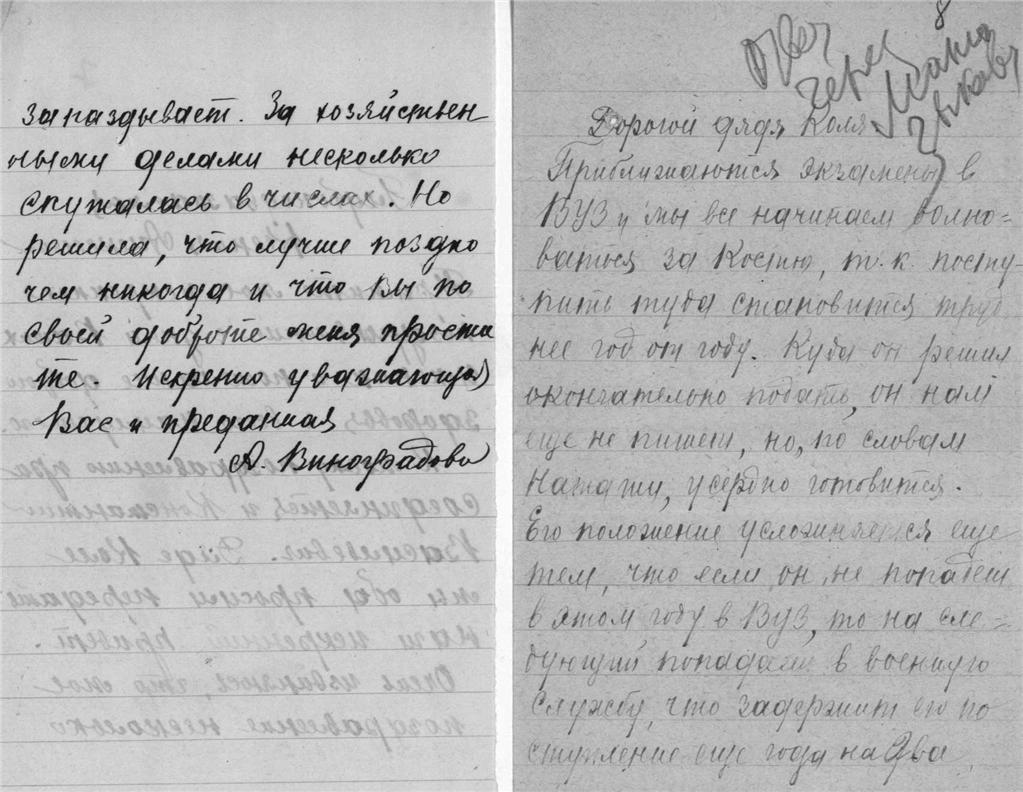 запаздывает. За хозяйствен
ными делами несколько
спуталась в числах. Но
решила, что лучше поздно
чем никогда и что Вы по
своей доброте меня прости
те. Искренно уважающая
Вас и преданная
А. Виноградова
8
Ответ
через
Дорогой дядя Коля
Приближаются экзамены в
ВУЗ и мы все начинаем волно-
ваться за Костю, т.к. посту-
пить туда становится труд
нее год от году. Куда он решил
окончательно подать, он нам
еще не пишет, но, по словам
Наташи, усердно готовится.
Его положение усложняется еще
тем, что если он не попадет
в этом году в ВУЗ, то на сле-
дующий попадает в военную
службу, что задержит его по
ступление еще года на два